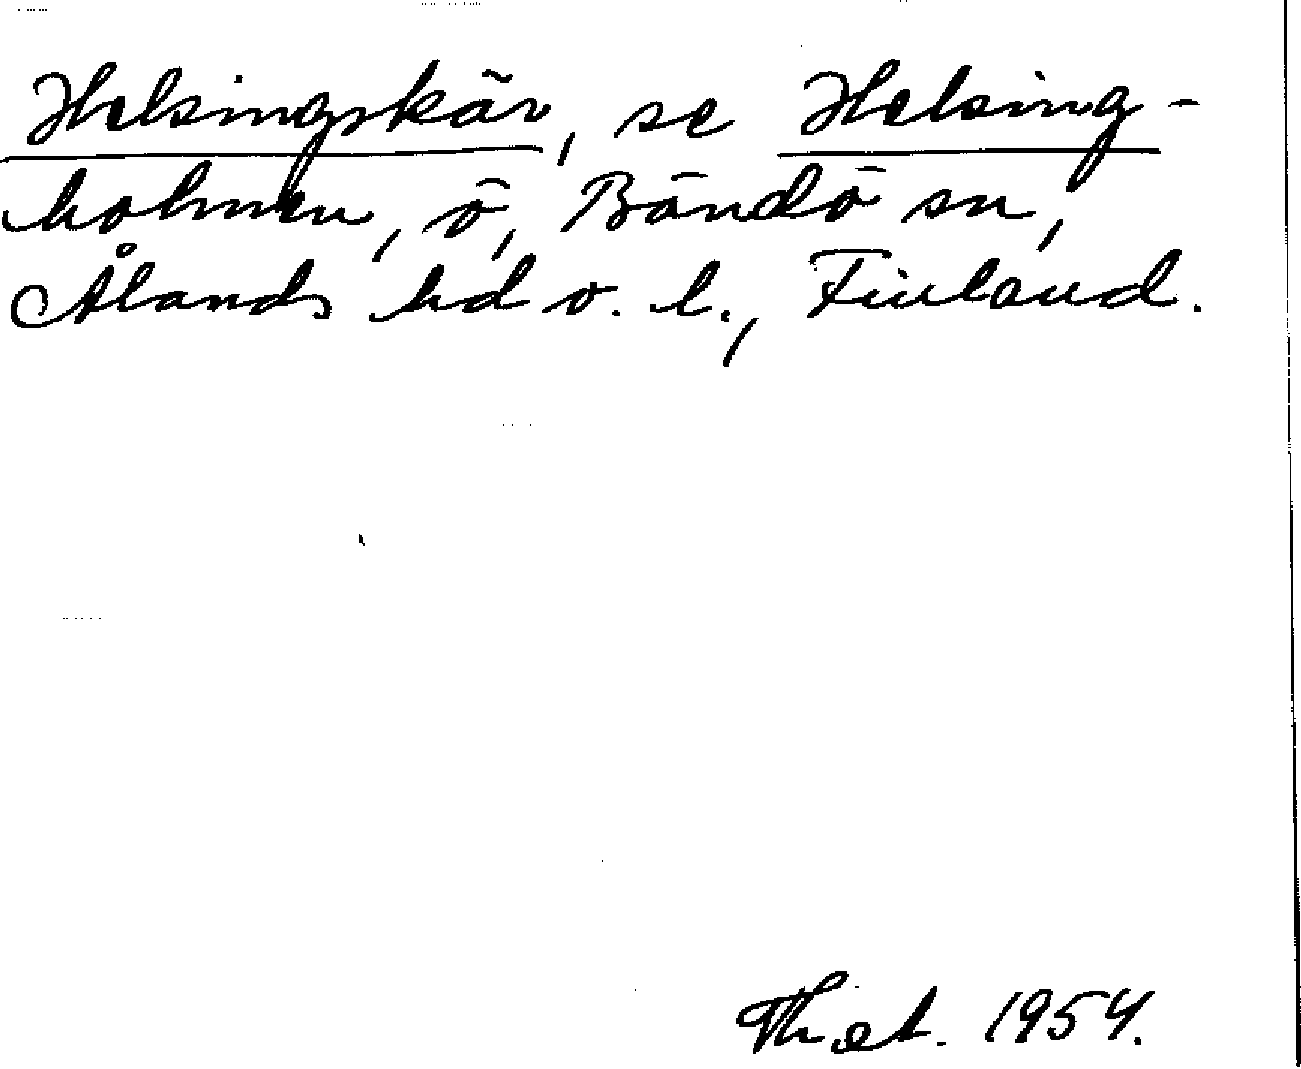 Helsingskär, se Helsing-
holmen, ö, Brändö sn,
Ålands hd o. l., Finland.
1954.